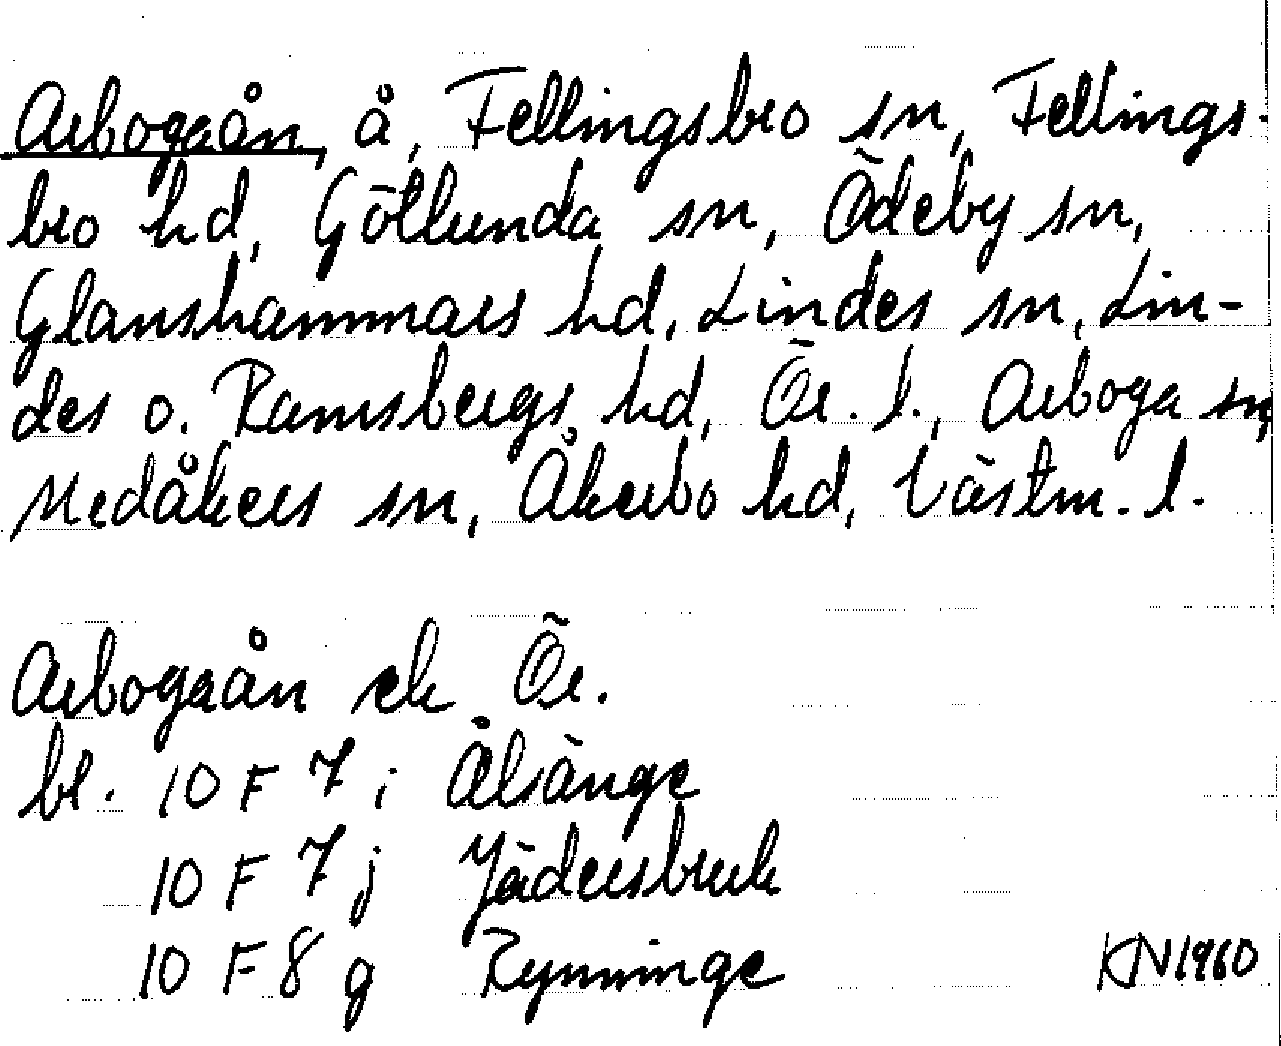 Arbogaån, å, Fellingsbro sn, Fellings-
bro hd, Götlunda sn, Ödeby sn,
Glanshammars hd, Lindes sn, Lin-
des o. Ramsbergs hd, Ör. l., Arboga sn,
Medåkers sn, Åkerbo hd, Västm. l.
Arbogaån ek Ör.
bl. 10 F 7 i Älvänge
10 F 7 j Jädersbruk
10 F 8 g Rynninge
KN 1960